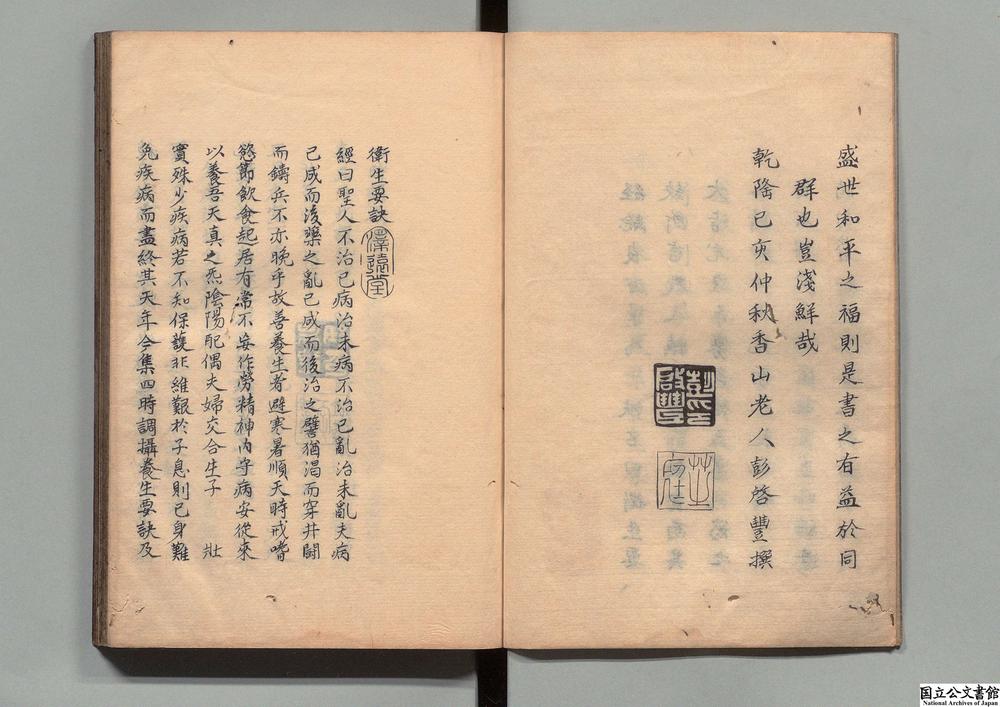 盛世和平之福則是書之有益於同
群也豈淺鮮哉
乾隆己亥仲秋香山老人彭啓豐撰
衛生要訣
經曰聖人不治已病治未病不治已亂治未亂夫病
已成而後藥之亂已成而後治之譬猶渴而穿井鬪
而鑄兵不亦晚乎故善養生者避寒暑順天時戒嗜
慾節飲食起居有常不妄作勞精神内守病安從來
以養吾天真之炁陰陽配偶夫婦交合生子 壯
實殊少疾病若不知保護非維艱於子息則已身難
免疾病而盡終其天年今集四時調攝養生要訣及
国立公文書館
National Archives of Japan